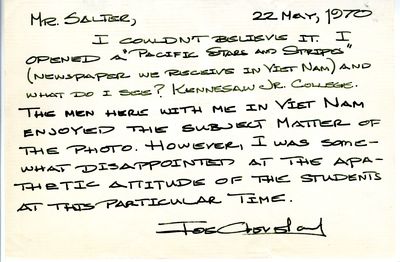 MR. SALTER, 22 MAY, 1970
I COULDN'T BELIEVE IT. I
OPENED A "PACIFIC STARS AND STRIPES"
(NEWSPAPER WE RECEIVE IN VIET NAM) AND
WHAT DO I SEE? KENNESAW JR. COLLEGE.
THE MEN HERE WITH ME IN VIET NAM
ENJOYED THE SUBJECT MATTER OF
THE PHOTO. HOWEVER, I WAS SOME-
WHAT DISAPPOINTED AT THE APA-
THETIC ATTITUDE OF THE STUDENTS
AT THIS PARTICULAR TIME.
JOE